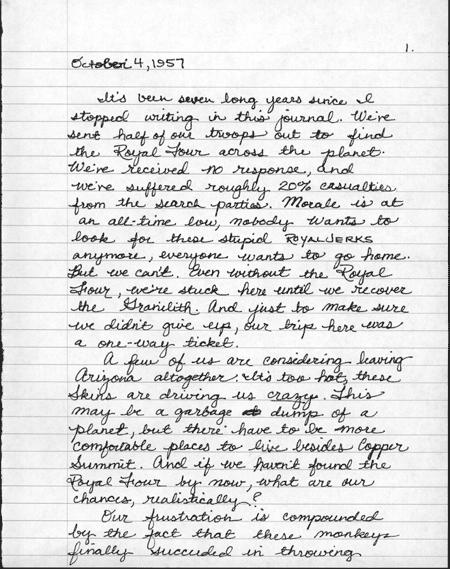 1.
October 4, 1957
It's been seven long years since I
stopped writing in this journal. We've
sent half of our troops out to find
the Royal Four across the planet.
We've received no response, and
we've suffered roughly 20% casualties
from the search parties. Morale is at
an all-time low, nobody wants to
look for these stupid ROYAL JERKS
anymore, everyone wants to go home.
But we can't. Even without the Royal
Four, we're stuck here until we recover
the Granilith. And just to make sure
we didn't give up, our trip here was
a one-way ticket.
A few of us are considering leaving
Arizona altogether. It's too hot, these
skins are driving us crazy. This
may be a garbage dump of a
planet, but there have to be more
comfortable places to live besides Copper
Summit. And if we haven't found the
Royal Four by now, what are our
chances, realistically?
Our frustration is compounded
by the fact that these monkeys
finally succeeded in throwing